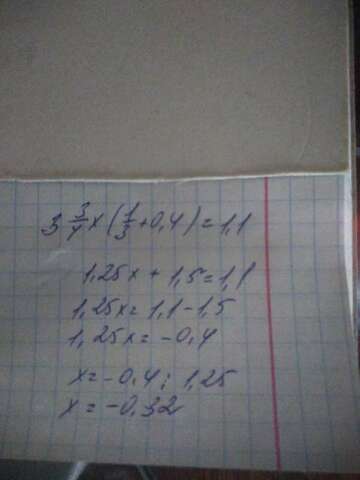 3 3/4 x (1/3 + 0,4) = 1,1
1,25x + 1,5 = 1,1
1,25x = 1,1 - 1,5
1,25x = -0,4
x = -0,4 : 1,25
x = -0,32